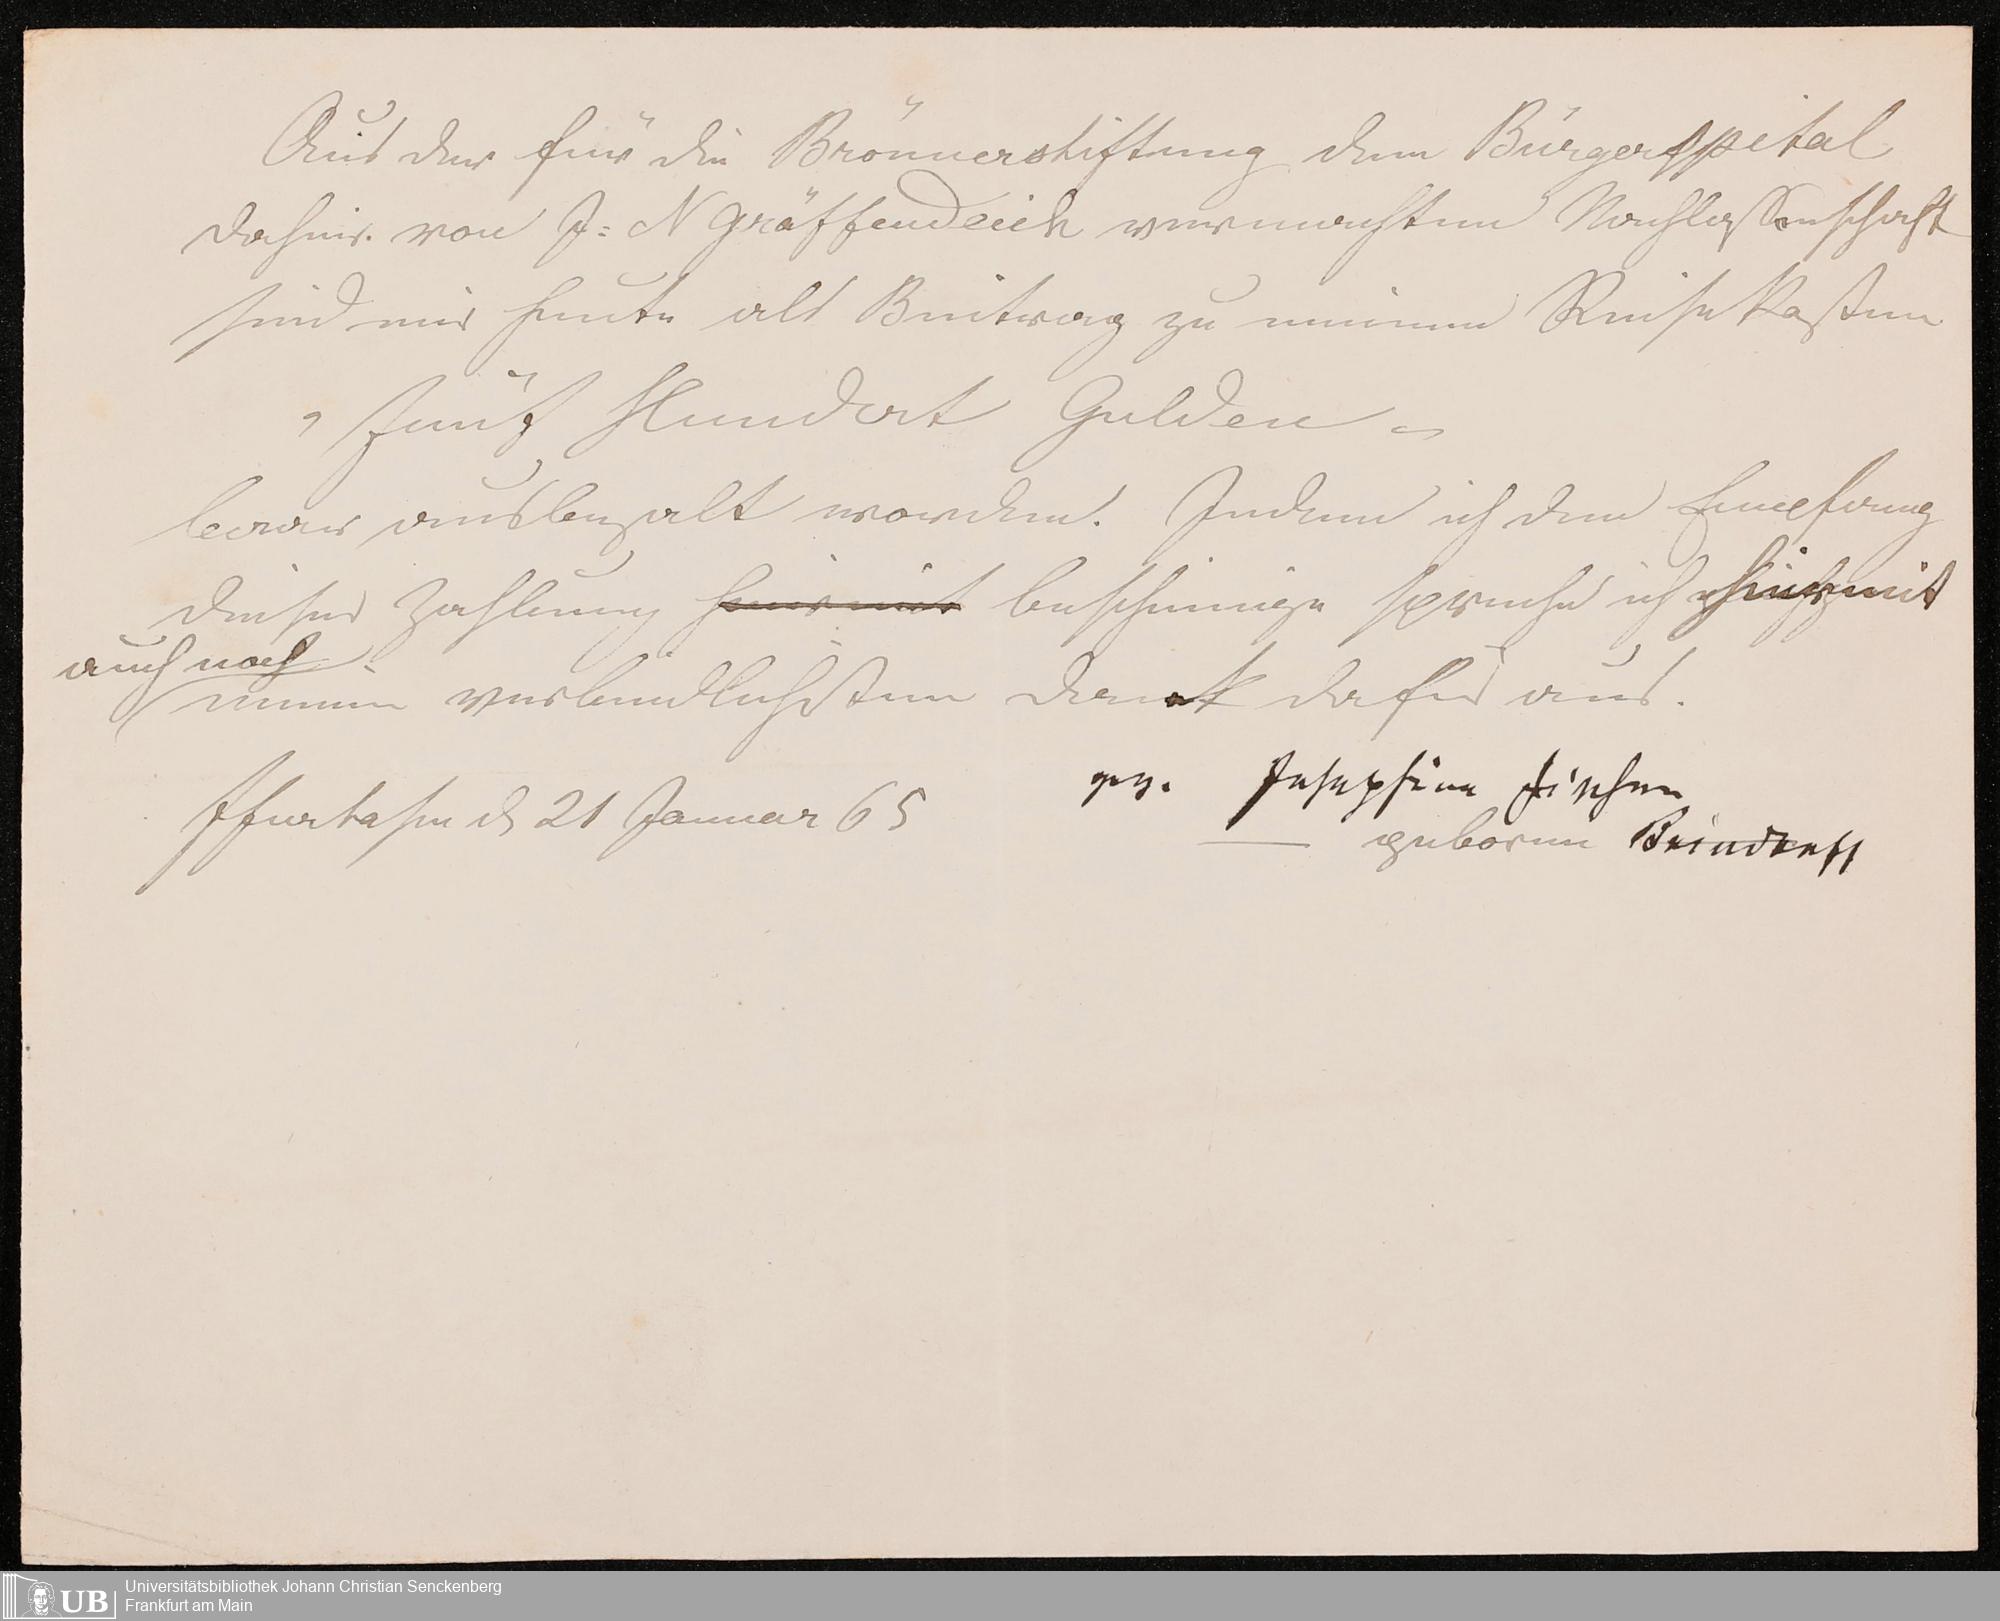 Aus der für die Brönnerstiftung dem Bürgerspital
dahier. von J: N Gräffendeich vermachten Nachlassenschaft
sind mir heute als Beitrag zu meinen Reisekosten
" Fünf Hundert Gulden "
baar ausbezalt worden. Indem ich den Empfang
dieser Zahlung hiermit bescheinige spreche ich hiermit
auch noch
meinen verbindlichsten Dank dafür aus.
Ffurt a/m d 21 Januar 65
gez. Josephine Fischer
geborene Beindorff
Universitätsbibliothek Johann Christian Senckenberg
Frankfurt am Main
UB